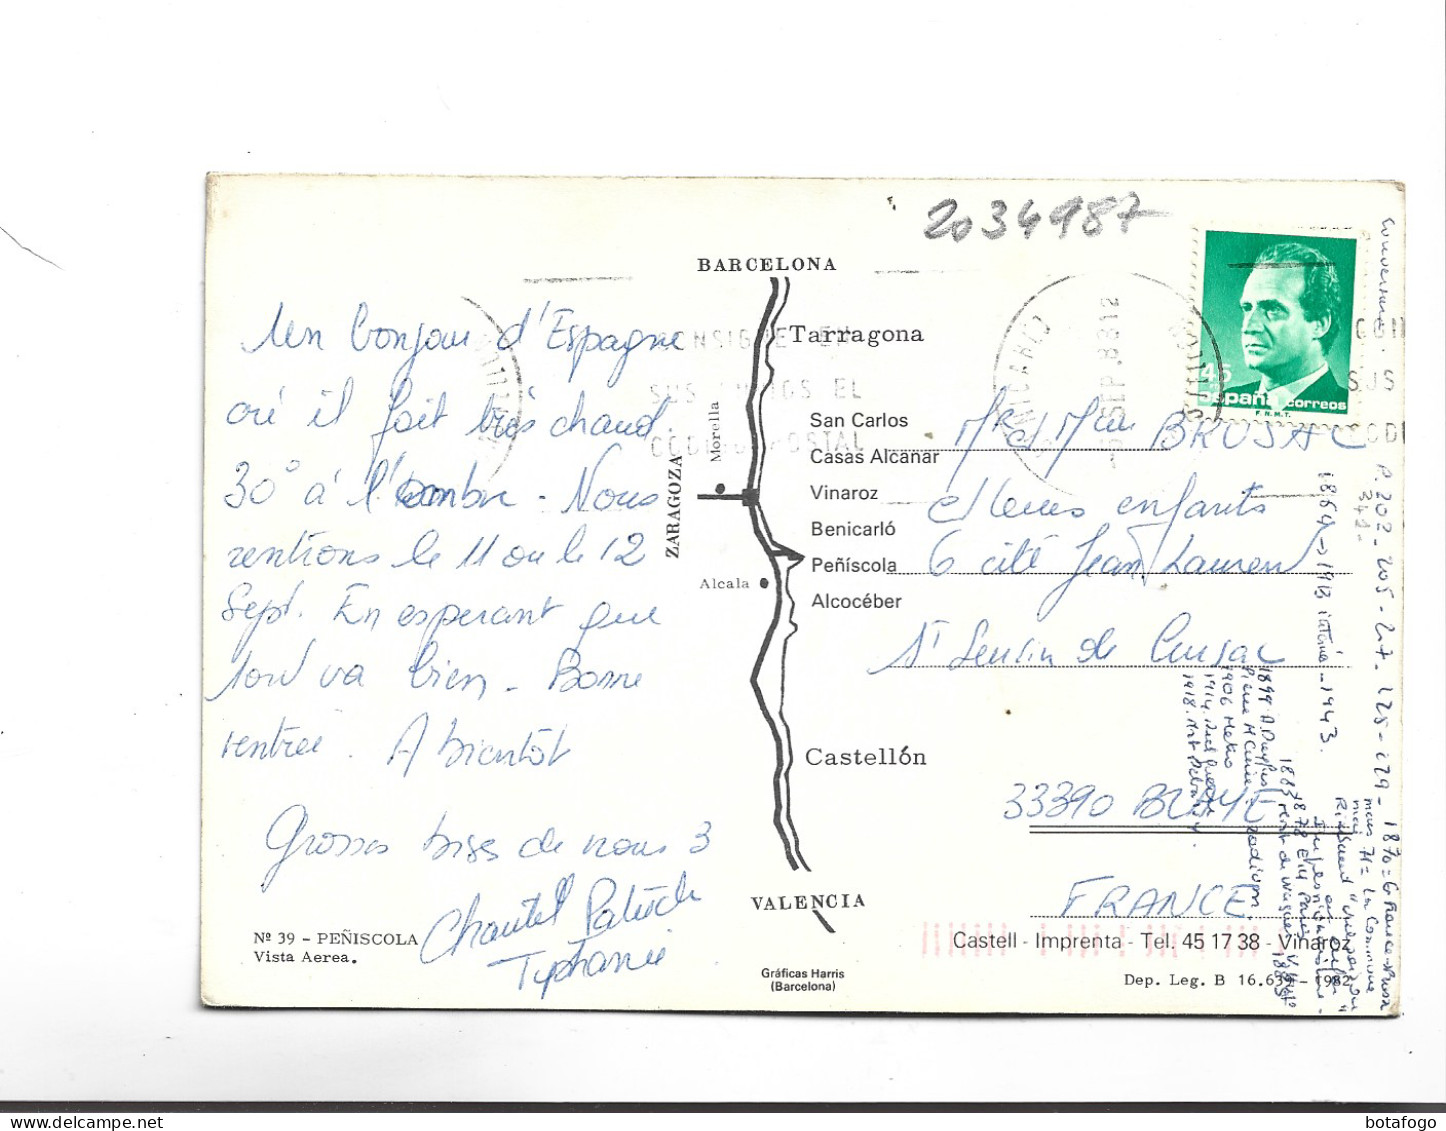 2034987
BARCELONA
Tarragona
Morella
ZARAGOZA
San Carlos
Casas Alcanar
Vinaroz
Benicarló
Peñíscola
Alcocéber
Alcala
Castellón
VALENCIA
Un bonjour d'Espagne
où il fait très chaud.
30° à l'ombre - Nous
rentrons le 11 ou le 12
Sept. En esperant que
tout va bien - Bonne
rentrée. A bientôt
Grosses bises de nous 3
Chantal Patrick
Typhanie
Nº 39 - PEÑISCOLA
Vista Aerea.
Gráficas Harris
(Barcelona)
España correos
F.N.M.T.
CONSIGNE EN
SUS ENVIOS EL
CODIGO POSTAL
Mr et Mme BRUSAC
et leurs enfants
6 cité Jean Laurent
St Seurin de Cursac
33390 BLAYE
FRANCE
Castell - Imprenta - Tel. 45 17 38 - Vinaroz
Dep. Leg. B 16.639 - 1982
P. 202 - 205 - 217 - 225 - 229 -
1899 A. Dreyfus
Pierre M Curie. radium.
1906 Metro